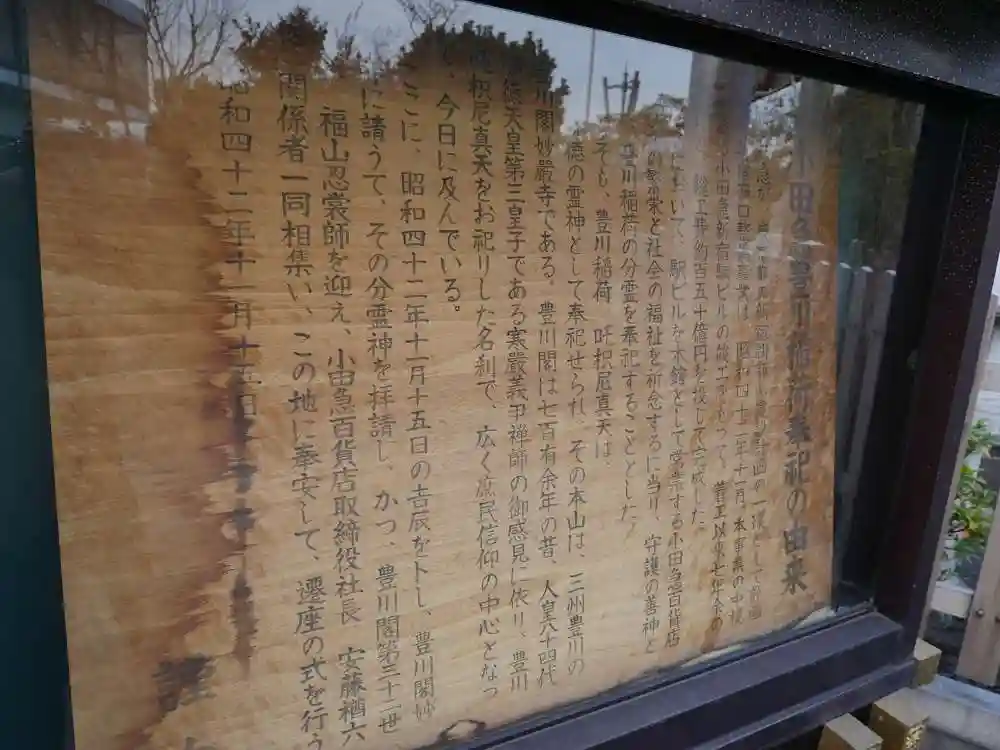 小田急豊川稲荷奉祀の由来
の一環として
は 昭和四十二年十一月、本事業の中核
小田急新宿駅ビルの竣工をもって、着工以来七年余の
約百五十億円を投じて完成した。
おいて、駅ビルを本館として営業する小田急百貨店
の繁栄と社会の福祉を祈念するに当り、守護の善神と
豊川稲荷の分霊を奉祀することとした。
そも、豊川稲荷 吒枳尼真天は、
徳の霊神として奉祀せられ、その本山は、三州豊川の
川閣妙厳寺である。豊川閣は七百有余年の昔、人皇八十四代
徳天皇第三皇子である寒巌義尹禅師の御感見に依り、豊川
枳尼真天をお祀りした名刹で、広く庶民信仰の中心となっ
、今日に及んでいる。
ここに、昭和四十二年十一月十五日の吉辰を卜し、豊川閣妙
に請うて、その分霊神を拝請し、かつ、豊川閣第三十二世
福山忍裳師を迎え、小田急百貨店取締役社長 安藤楢六
関係者一同相集い、この地に奉安して、遷座の式を行う
昭和四十二年十一月十五日
謹